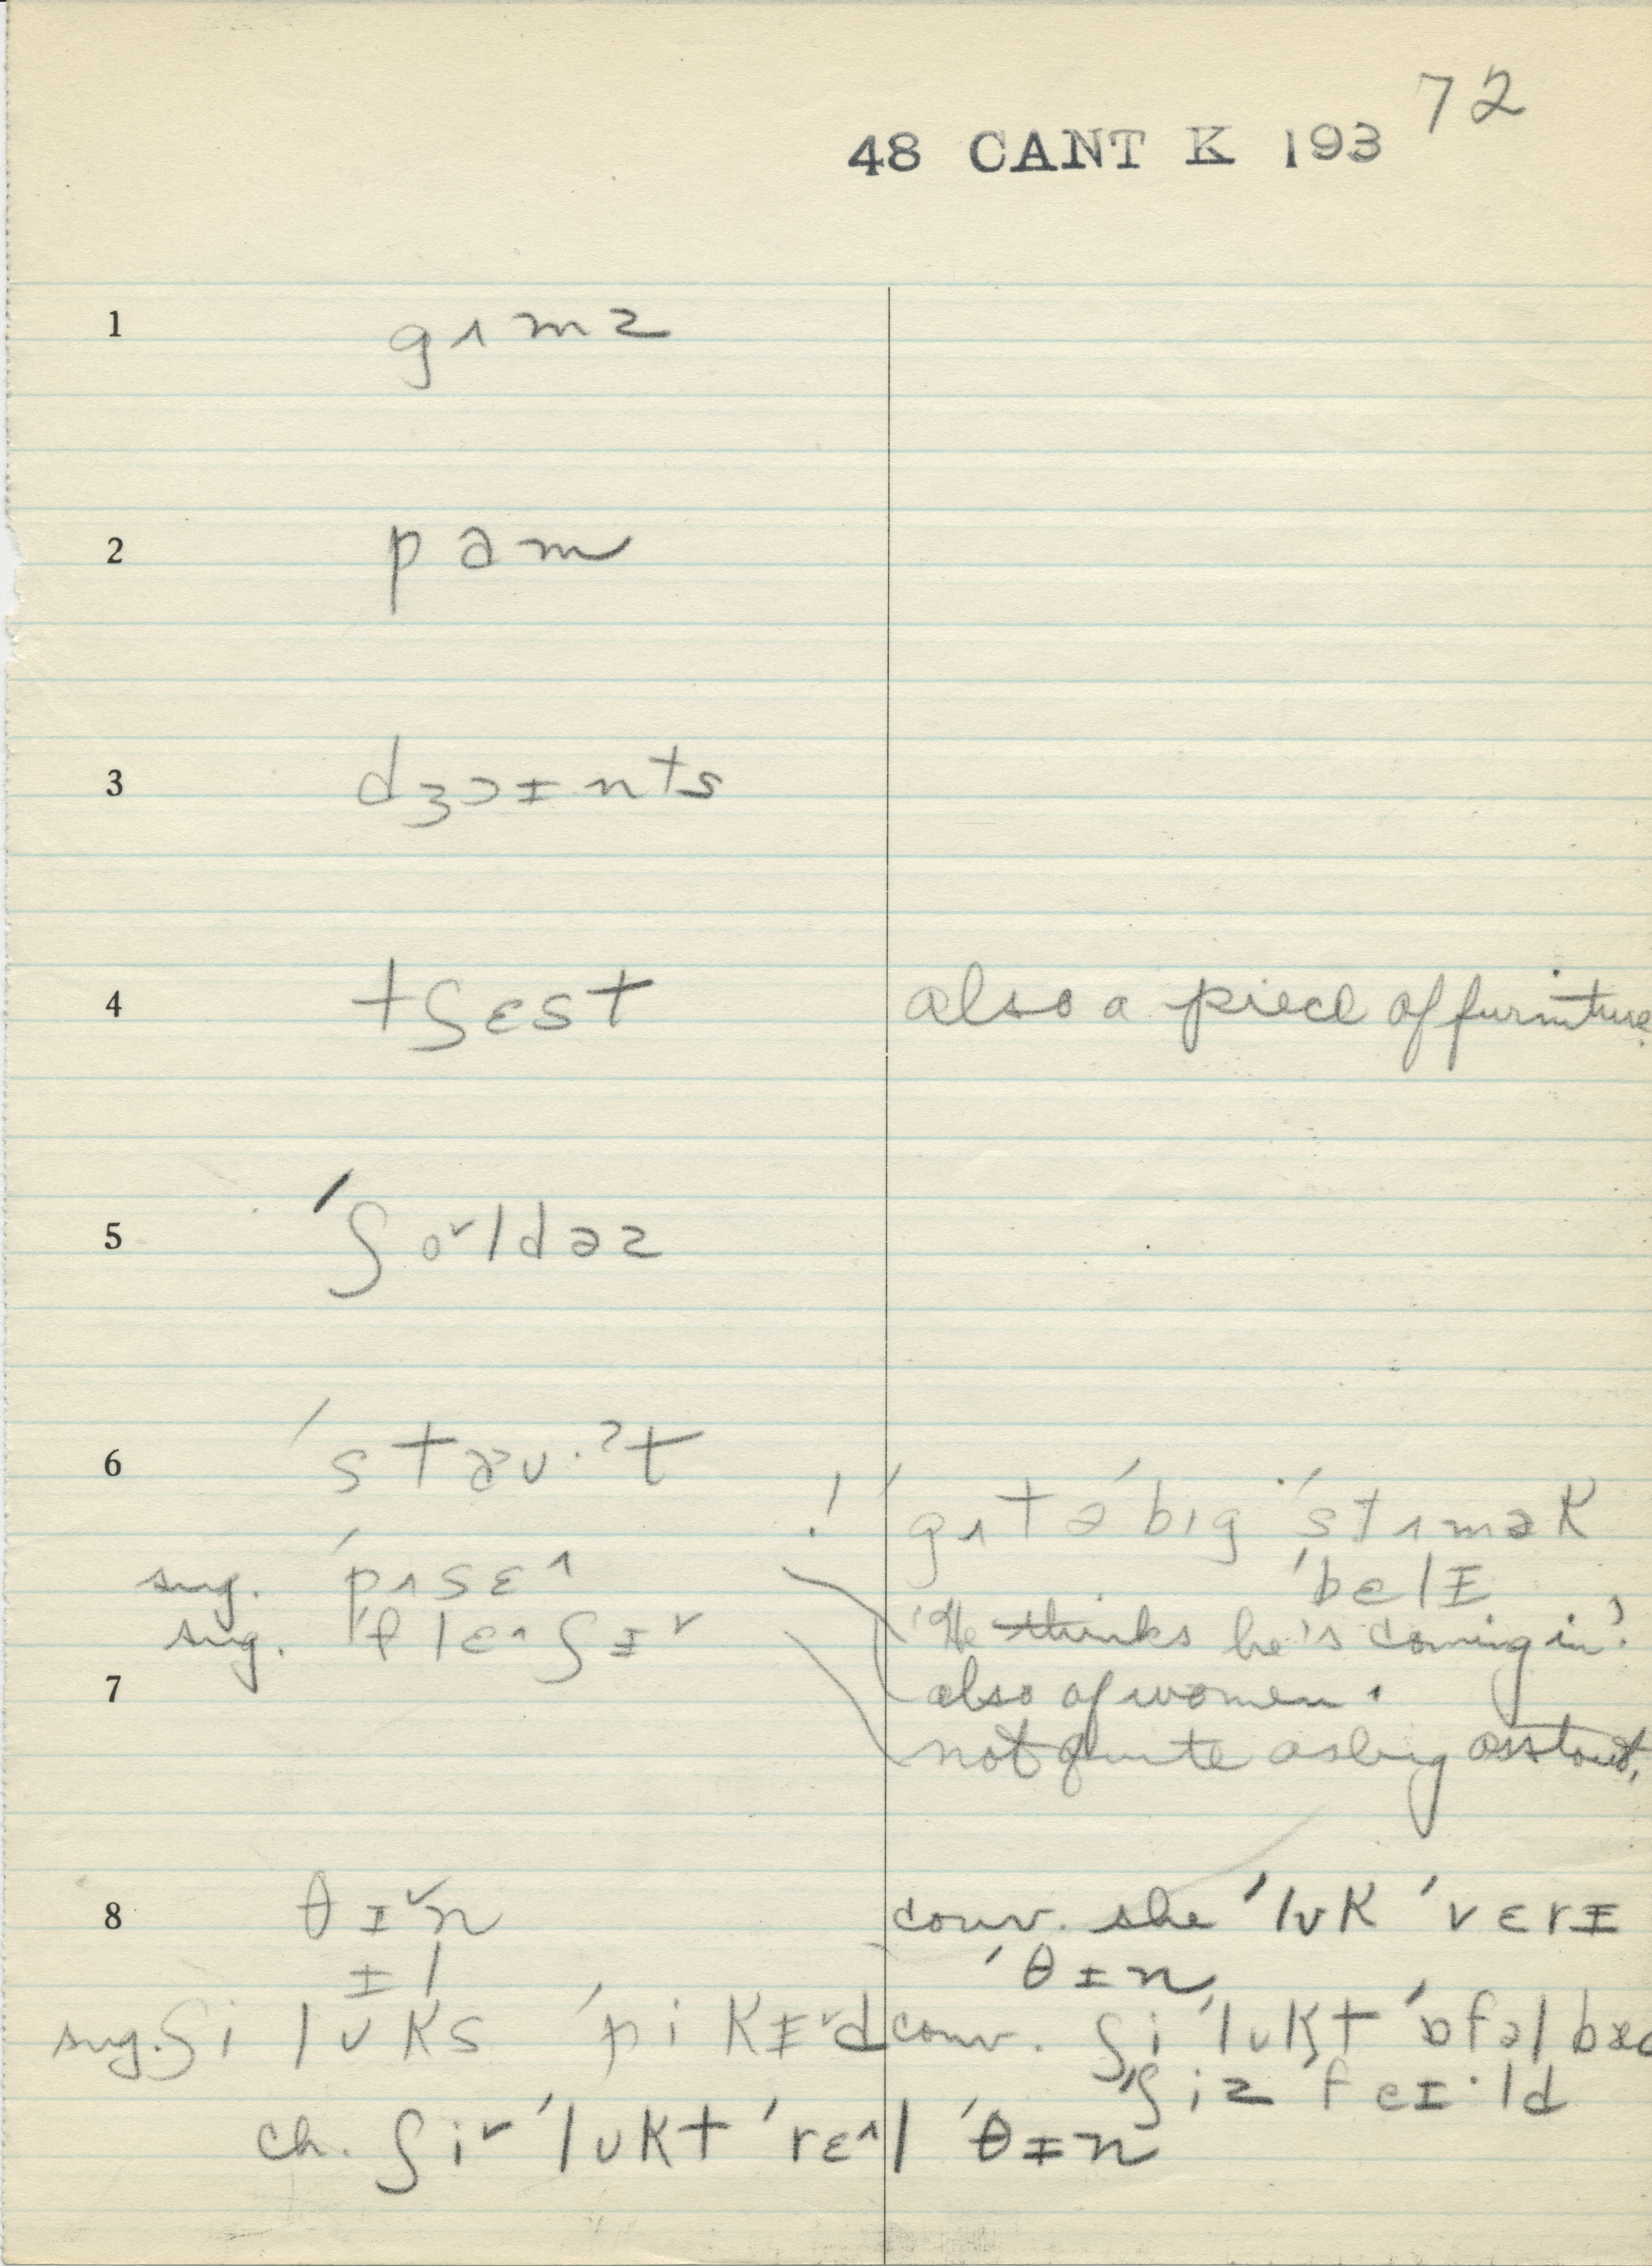 72
48 CANT K 193
1 gʌmz
2 pam
3 dʒɔɪnts
4 tʃɛst also a piece of furniture.
5 ˈʃo˅ldəz
6 ˈsta˃ʊ·ˀt
! ˈgʌt ə ˈbɪg ˈstʌmək
sug. ˈpʌsɛ^ ˈbɛlɪ
sug. ˈflɛ^ʃɪ˅ 'He thinks he's coming in'.
7 also of women.
not quite as big as stout.
8 θɪ˅n conv. she ˈlʊk ˈvɛrɪ
ɪl ˈθɪn
sug. ʃi lʊks ˈpikɪ˅d conv. ʃi ˈlʊkt ˈɒfəl bæd
ˈʃiz ˈfeɪ·ld
ch. ʃi˅ ˈlʊkt ˈrɛ^l ˈθɪn